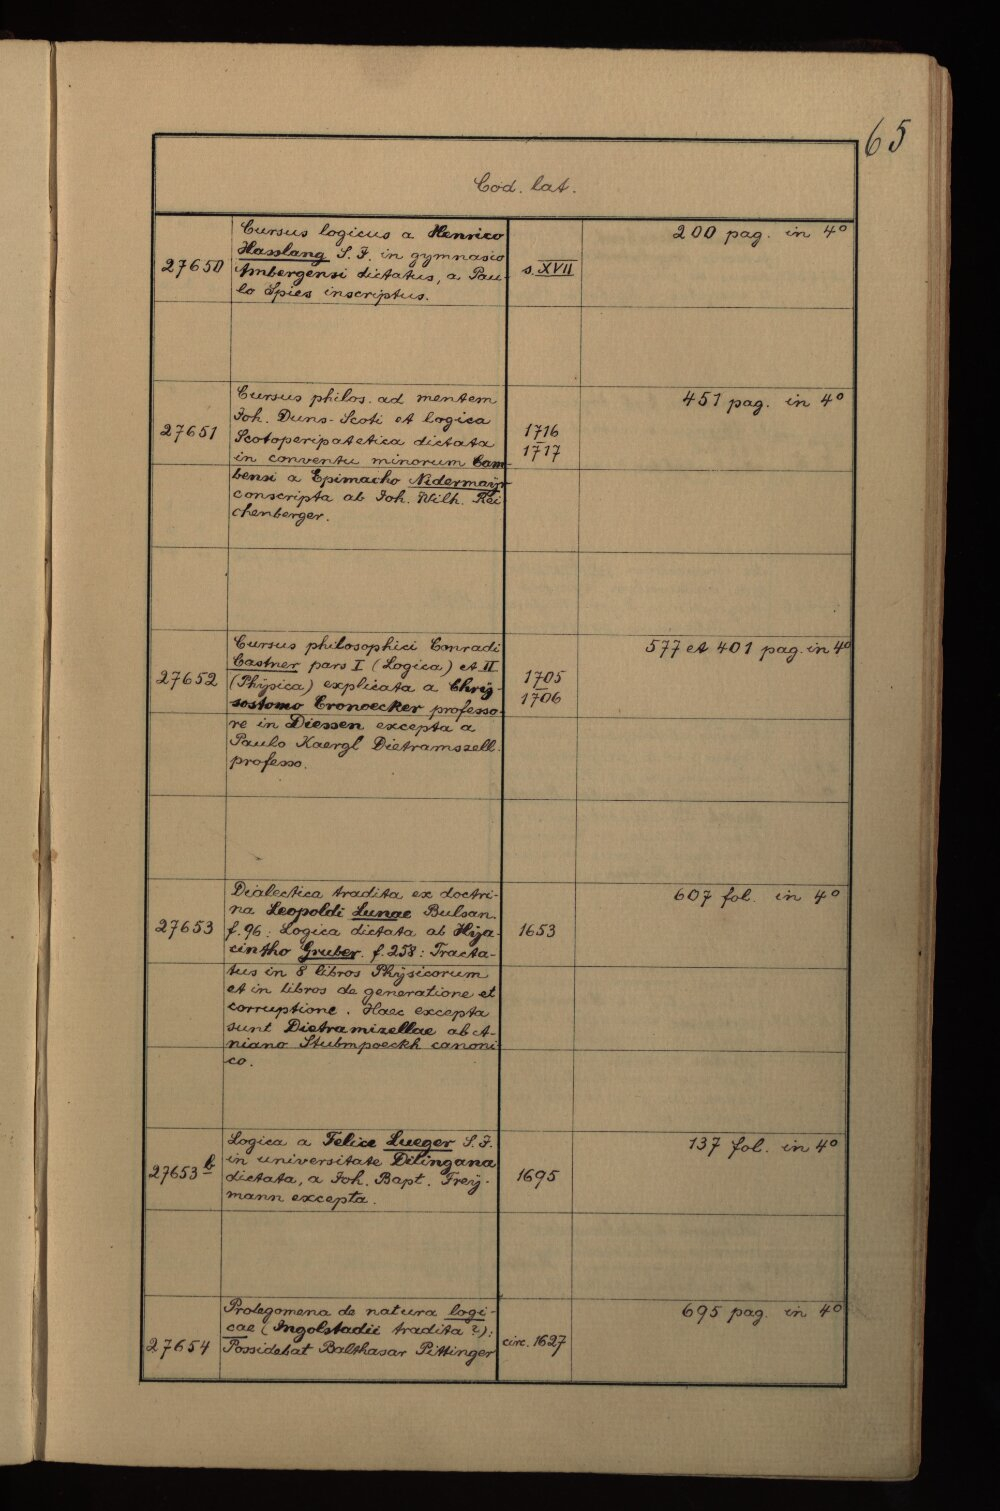 65
Cod. lat.
Cursus logicus a Henrico
Hasslang S. J. in gymnasio
27650 Ambergensi dictatus, a Pau-
lo Spies inscriptus.
s. XVII
200 pag. in 4°
Cursus philos. ad mentem
Joh. Duns-Scoti et logica
27651 Scotoperipatetica dictata
in conventu minorum Cam-
bensi a Epimacho Nidermayr
conscripta ab Joh. Wilh. Rei
chenberger.
1716
1717
451 pag. in 4°
Cursus philosophici Conradi
Castner pars I (Logica) et II
27652 (Physica) explicata a Chrÿ-
sostomo Cronoecker professo-
re in Diessen excepta a
Paulo Kaergl Dietramszell.
professo.
1705
1706
577 et 401 pag. in 4°
Dialectica tradita ex doctri-
na Leopoldi Lunae Bulsan.
27653 f. 96: Logica dictata ab Hÿa-
cintho Gruber. f. 258: Tracta-
tus in 8 libros Phÿsicorum
et in libros de generatione et
corruptione. Haec excepta
sunt Dietramizellae ab A-
niano Stubmpoeckh canoni
co.
1653
607 fol. in 4°
Logica a Felice Lueger S. J.
in universitate Dilingana
27653 b dictata, a Joh. Bapt. Freÿ-
mann excepta.
1695
137 fol. in 4°
Prolegomena de natura logi-
cae (Ingolstadii tradita ?);
27654 Possidebat Balthasar Pittinger
circ. 1627
695 pag. in 4°